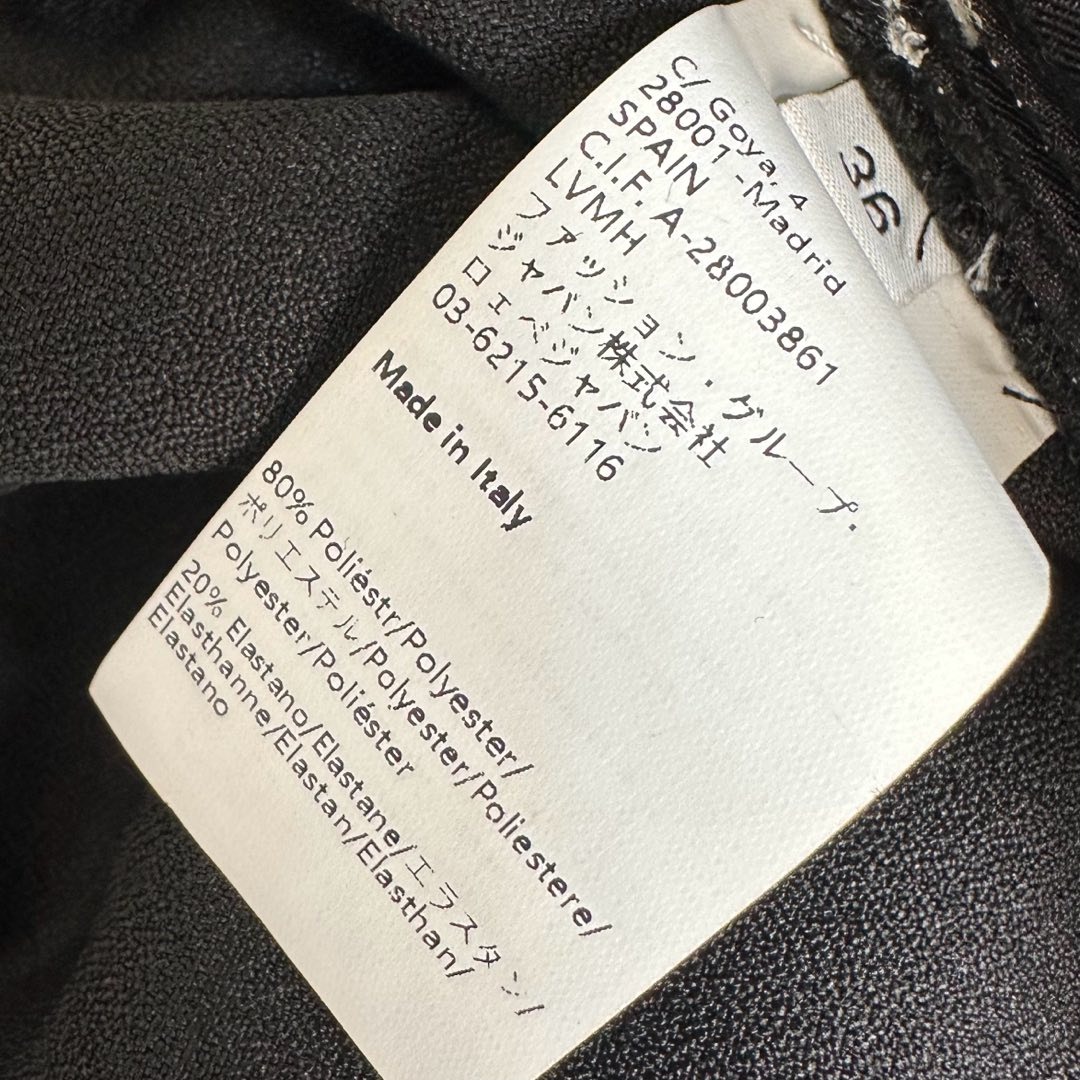 C/ Goya, 4
28001 -Madrid
SPAIN
C.I.F. A-28003861
LVMH
ファッション・グループ・
ジャパン株式会社
ロエベジャパン
03-6215-6116
Made in Italy
80% Poliéstr/Polyester/
ポリエステル/Polyester/Poliestere/
Polyester/Poliéster
20% Elastano/Elastane/エラスタン/
Elasthanne/Elastan/Elasthan/
Elastano
36